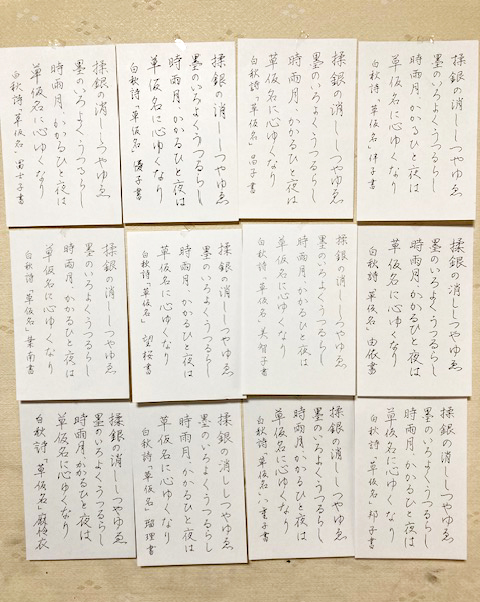 揉銀の消ししつやゆゑ
墨のいろよくうつるらし
時雨月、かかるひと夜は
草仮名に心ゆくなり
白秋詩「草仮名」 律子書
揉銀の消ししつやゆゑ
墨のいろよくうつるらし
時雨月、かかるひと夜は
草仮名に心ゆくなり
白秋詩「草仮名」 昌子書
揉銀の消ししつやゆゑ
墨のいろよくうつるらし
時雨月、かかるひと夜は
草仮名に心ゆくなり
白秋詩「草仮名」 優子書
揉銀の消ししつやゆゑ
墨のいろよくうつるらし
時雨月、かかるひと夜は
草仮名に心ゆくなり
白秋詩「草仮名」 冨士子書
揉銀の消ししつやゆゑ
墨のいろよくうつるらし
時雨月、かかるひと夜は
草仮名に心ゆくなり
白秋詩「草仮名」 由依書
揉銀の消ししつやゆゑ
墨のいろよくうつるらし
時雨月、かかるひと夜は
草仮名に心ゆくなり
白秋詩「草仮名」 美智子書
揉銀の消ししつやゆゑ
墨のいろよくうつるらし
時雨月、かかるひと夜は
草仮名に心ゆくなり
白秋詩「草仮名」 望桜書
揉銀の消ししつやゆゑ
墨のいろよくうつるらし
時雨月、かかるひと夜は
草仮名に心ゆくなり
白秋詩「草仮名」 葉南書
揉銀の消ししつやゆゑ
墨のいろよくうつるらし
時雨月、かかるひと夜は
草仮名に心ゆくなり
白秋詩「草仮名」 邦子書
揉銀の消ししつやゆゑ
墨のいろよくうつるらし
時雨月、かかるひと夜は
草仮名に心ゆくなり
白秋詩「草仮名」 八重子書
揉銀の消ししつやゆゑ
墨のいろよくうつるらし
時雨月、かかるひと夜は
草仮名に心ゆくなり
白秋詩「草仮名」 瑠理書
揉銀の消ししつやゆゑ
墨のいろよくうつるらし
時雨月、かかるひと夜は
草仮名に心ゆくなり
白秋詩「草仮名」